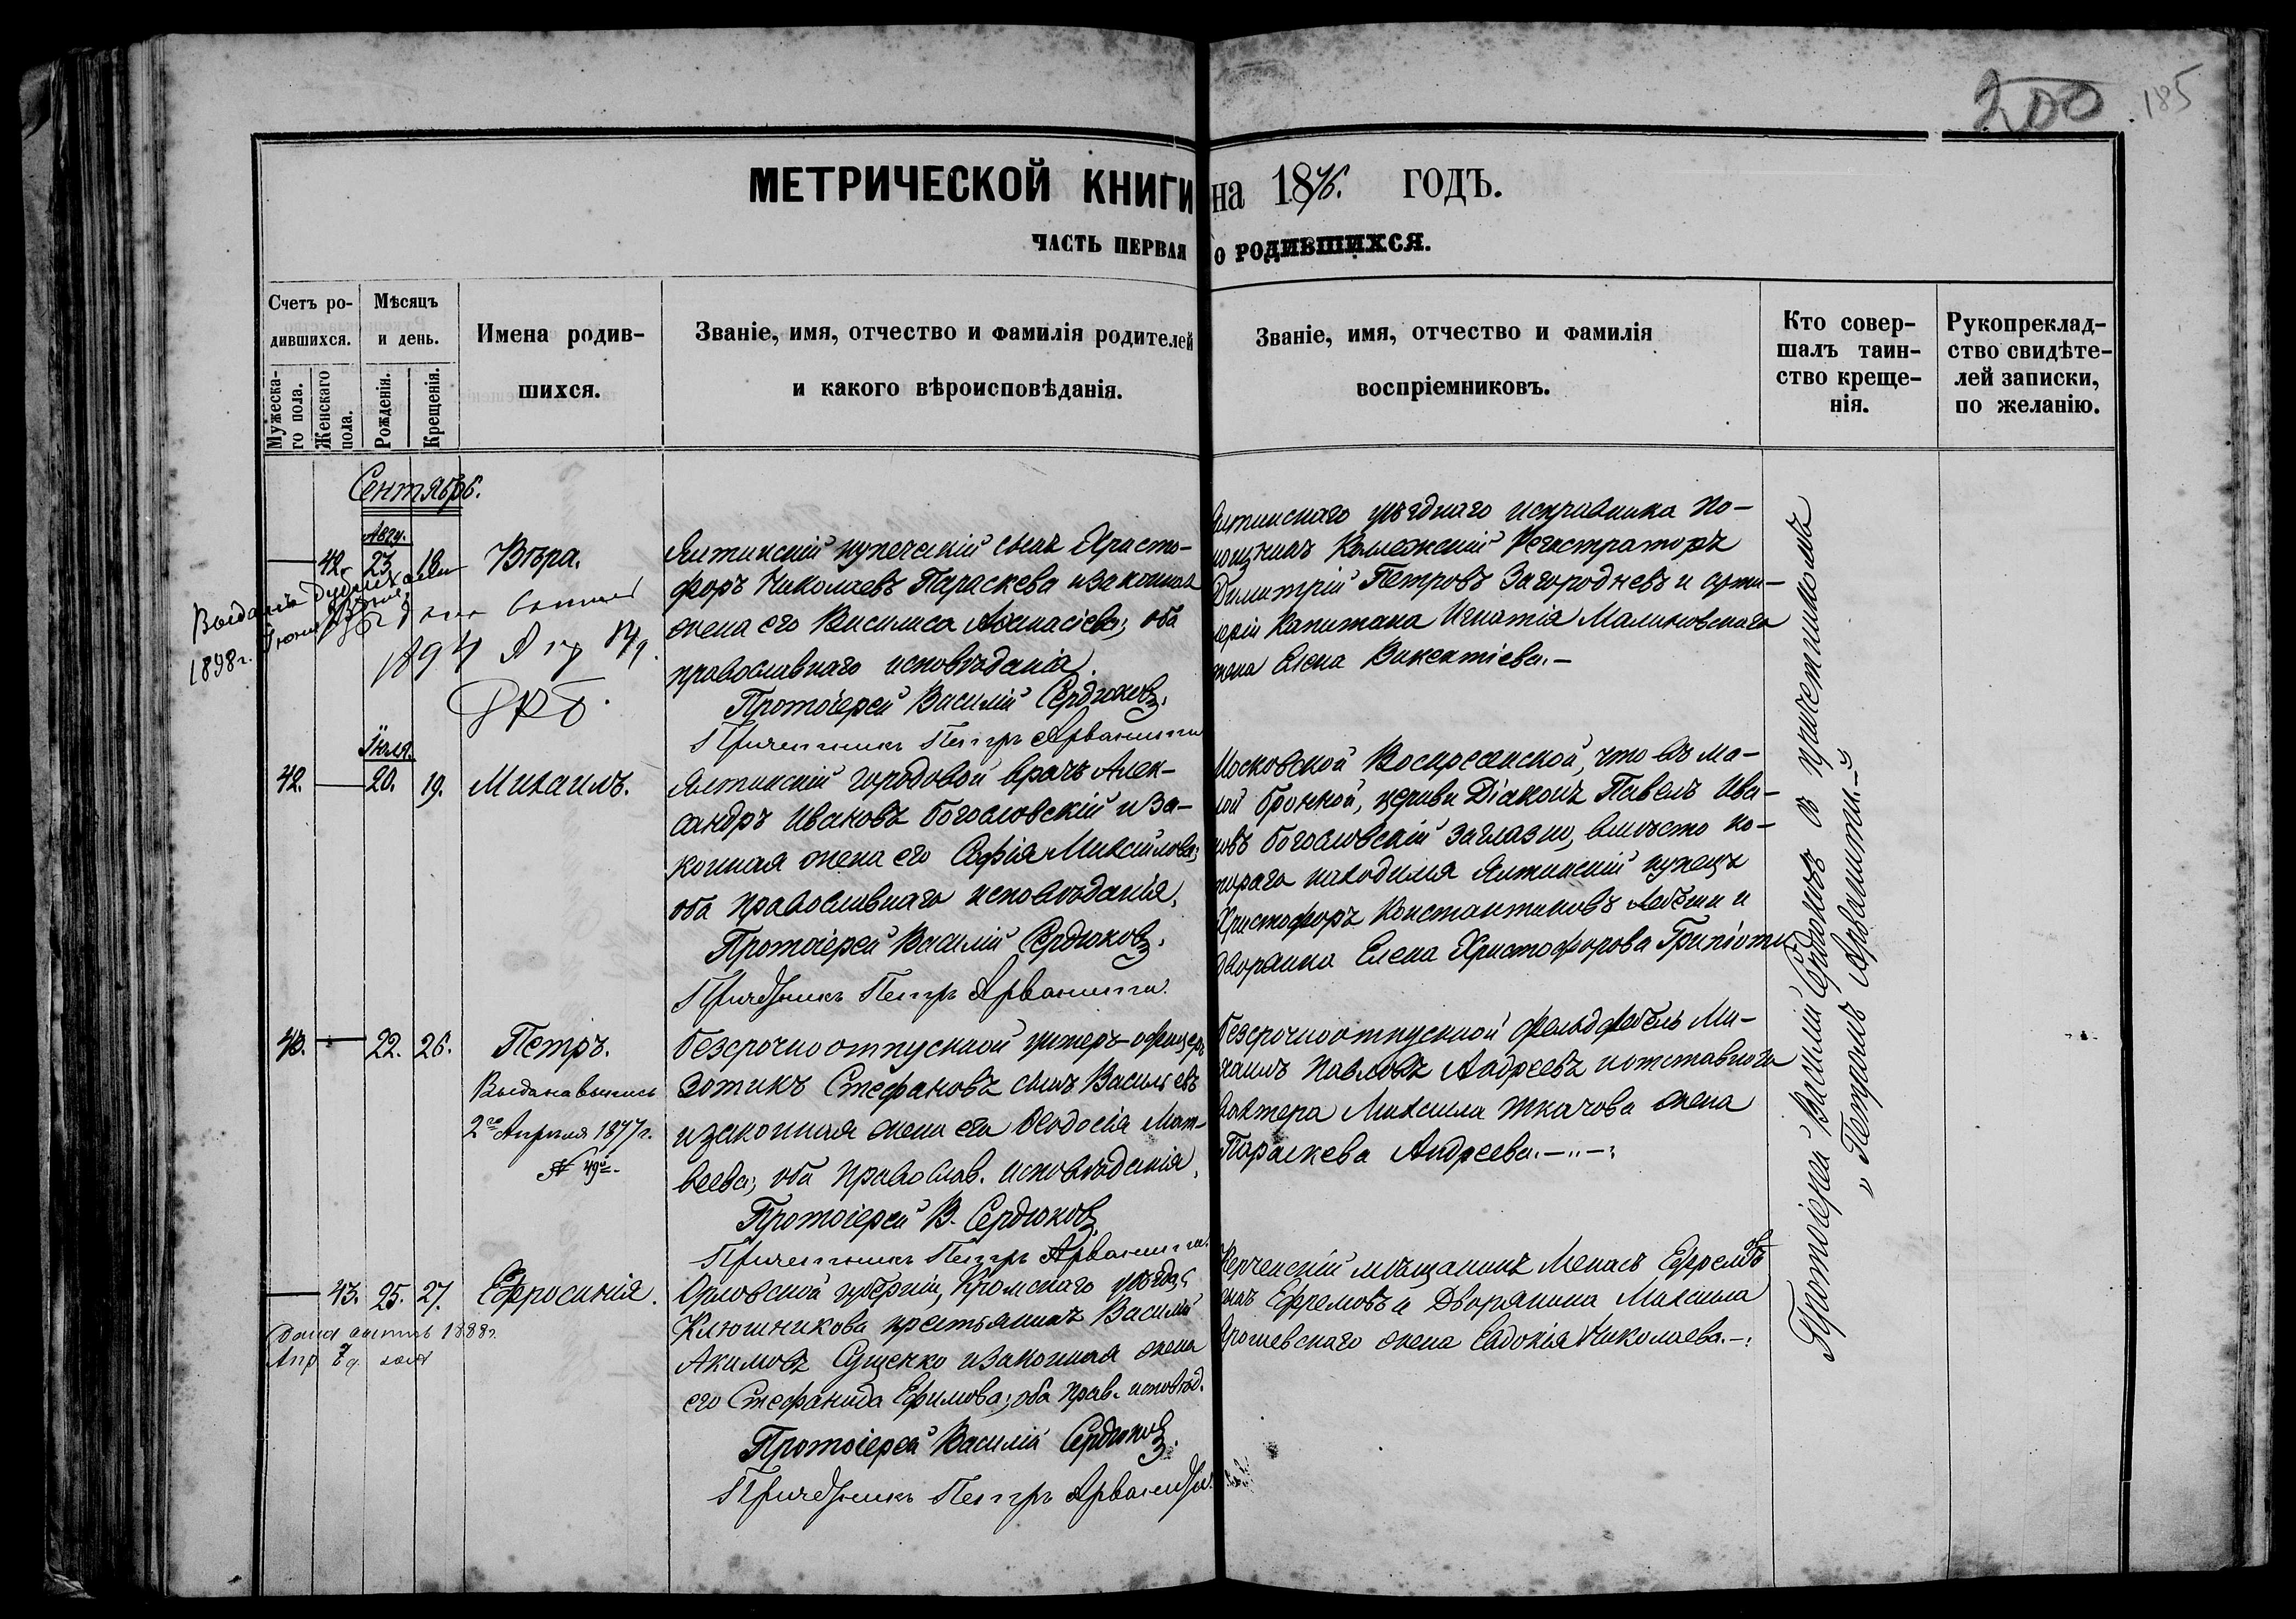 200
185
МЕТРИЧЕСКОЙ КНИГИ на 1876. ГОДЪ.
ЧАСТЬ ПЕРВАЯ О РОДИВШИХСЯ.
Счетъ ро-
дившихся.
Мужеска-
го пола.
Женскаго
пола.
Мѣсяцъ
и день.
Рожденія.
Крещенія.
Имена родив-
шихся.
Званіе, имя, отчество и фамилія родителей
и какого вѣроисповѣданія.
Званіе, имя, отчество и фамилія
воспріемниковъ.
Кто совер-
шалъ таин-
ство креще-
нія.
Рукопреклад-
ство свидѣте-
лей записки,
по желанію.
Сентябрь.
Авгу.
42. 23. 18. Вѣра.
Выданъ
1898г. Іюня
1894
Ялтинскій купеческій сынъ Христо-
форъ Николаевъ Параскева и законная
жена его Василиса Аѳанасіева; оба
православнаго исповѣданія.
Протоіерей Василій Сердюковъ.
Причетникъ Петръ Арванити
Ялтинскаго уѣзднаго исправника по-
мощникъ Коллежскій Регистраторъ
Димитрій Петровъ Загородневъ и арти-
леріи Капитана Игнатія Малиновскаго
жена Елена Викентіева.—
Іюля.
42. 20. 19. Михаилъ.
Ялтинскій городовой врачъ Алек-
сандръ Ивановъ Богословскій и за-
конная жена его Софія Михайлова;
оба православнаго исповѣданія.
Протоіерей Василій Сердюковъ.
Причетникъ Петръ Арванити.
Московской Воскресенской, что въ ма-
лой бронной, церкви Діаконъ Павелъ Ива-
новъ Богословскій заглазно, вмѣсто ко-
тораго находился Ялтинскій купецъ
Христофоръ Константиновъ и
дворянка Елена Христофорова
43. 22. 26. Петръ.
Выдана выпись
2го Апрѣля 1877г.
№ 49й.
безсрочноотпускной унтеръ-офицеръ
Зотикъ Стефановъ сынъ Васильевъ
и законная жена его Ѳеодосія Мат-
веева; оба православ. исповѣданія.
Протоіерей В. Сердюковъ.
Причетникъ Петръ Арванити.
безсрочноотпускной фельдфебель Ми-
хаилъ Павловъ Андреевъ и отставнаго
вахтера Михаила Ткачова жена
Параскева Андреева.—
43. 25. 27. Ефросинія.
1888г.
Апр.
Орловской губерніи, Кромскаго уѣзда,
Ключникова крестьянинъ Василій
Акимовъ Сущенко и законная жена
его Стефанида Ефимова; оба прав. исповѣд.
Протоіерей Василій Сердюковъ.
Причетникъ Петръ Арванити.
Керченскій мѣщанинъ Менасъ Ефремовъ
сынъ Ефремовъ и Дворянина Михаила
жена Евдокія Николаева.—
Протоіерей Василій Сердюковъ съ причетникомъ
„ Петромъ Арванити.—